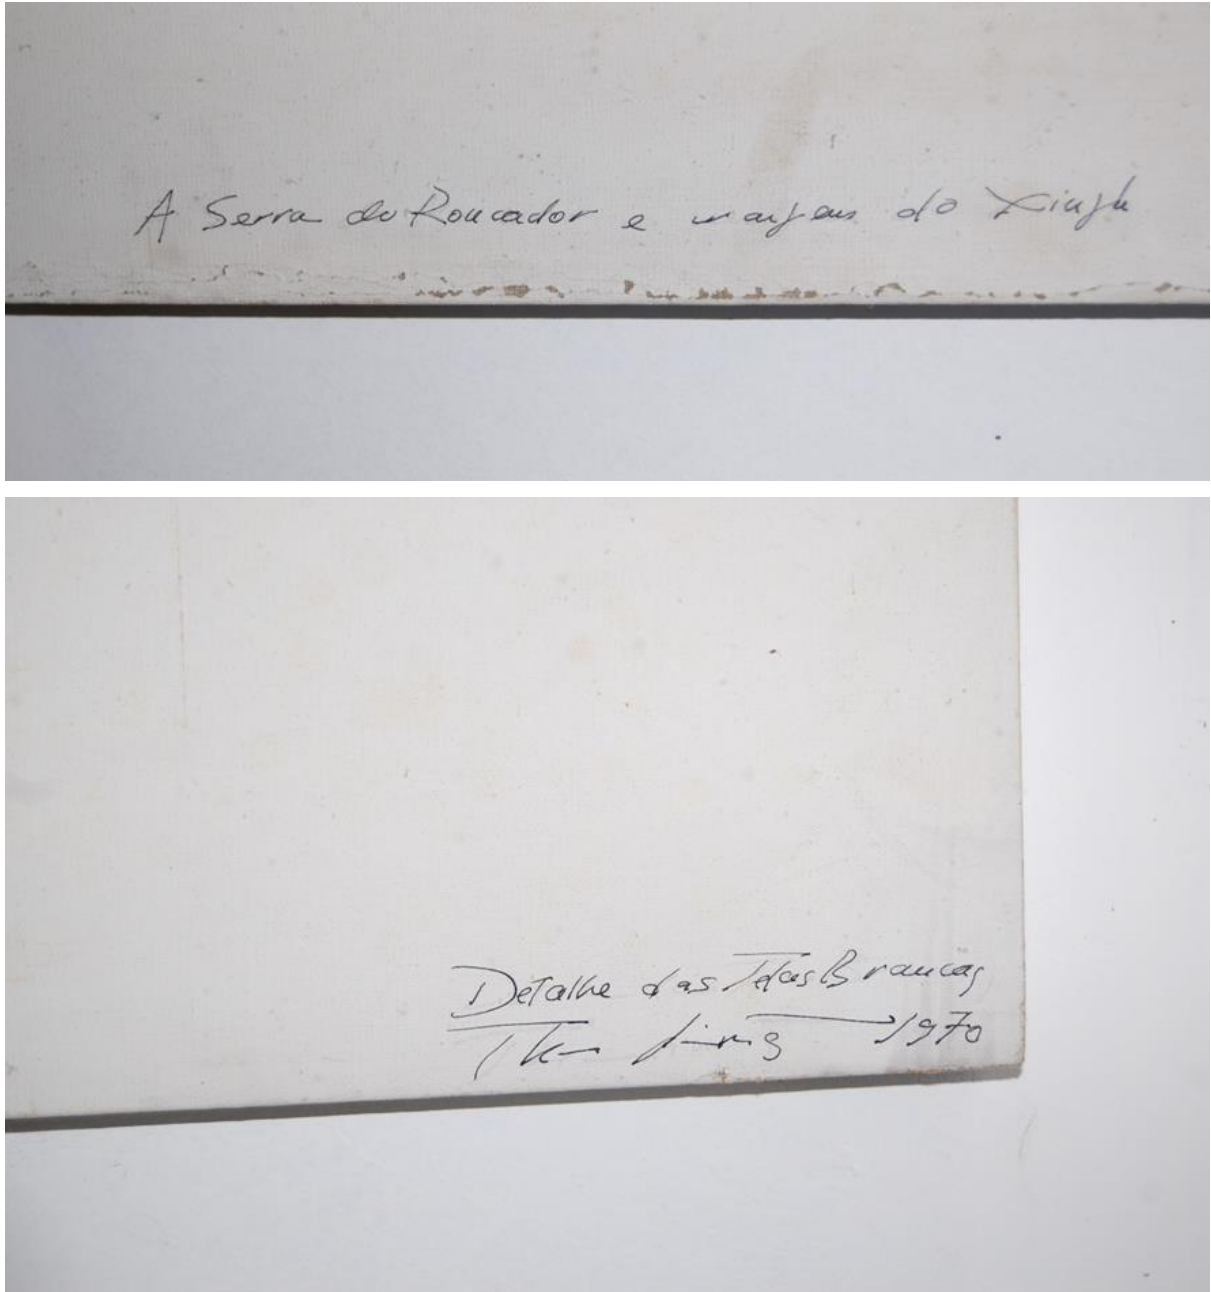 A Serra do Roncador e margens do Xingu
Detalhe das Telas Brancas
1970